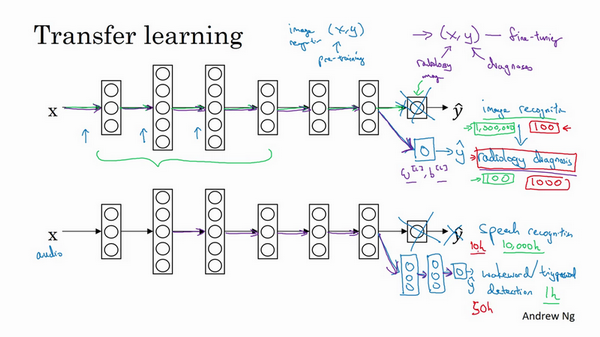 Transfer learning
image (x, y)
pre-training
→ (x, y) — fine-tuning
radiology
diagnoses
x
ŷ
image recognition
1,000,000 100
ŷ
radiology diagnosis
100 1000
x
audio
y
speech recognition
10h 10,000h
ŷ
wakeword/triggerword
detection 1h
50h
Andrew Ng